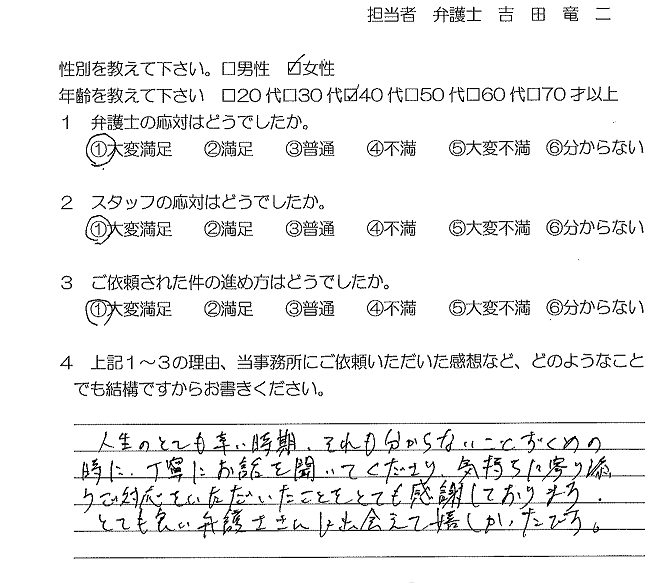 担当者　弁護士　吉　田　竜　二
性別を教えて下さい。□男性　☑女性
年齢を教えて下さい　□20代□30代☑40代□50代□60代□70才以上
1　弁護士の応対はどうでしたか。
①大変満足　②満足　③普通　④不満　⑤大変不満　⑥分からない
2　スタッフの応対はどうでしたか。
①大変満足　②満足　③普通　④不満　⑤大変不満　⑥分からない
3　ご依頼された件の進め方はどうでしたか。
①大変満足　②満足　③普通　④不満　⑤大変不満　⑥分からない
4　上記1～3の理由、当事務所にご依頼いただいた感想など、どのようなこと
でも結構ですからお書きください。
人生のとても辛い時期、それも分からないことずくめの
時に、丁寧にお話を聞いてくださり、気持ちに寄り添
うご対応をいただいたことをとても感謝しております。
とても良い弁護士さんに出会えて嬉しかったです。